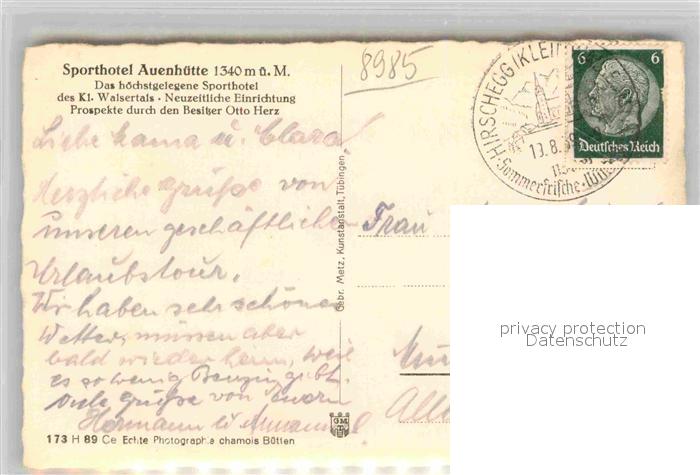 Sporthotel Auenhütte 1340 m ü. M.
Das höchstgelegene Sporthotel
des Kl. Walsertals · Neuzeitliche Einrichtung
Prospekte durch den Besitzer Otto Herz
8985
HIRSCHEGG (KLEIN
13.8.39
Sommerfrische
6 6
Deutsches Reich
Liebe Mama u. Clara!
Herzliche Grüße von
unseren geschäftlichen
Urlaubstour.
Wir haben sehr schönes
Wetter, müssen aber
bald wieder heim, weil
es so wenig Benzin gibt.
Viele Grüße von Euern
Hermann u.
Gebr. Metz, Kunstanstalt, Tübingen
Frau
privacy protection
Datenschutz
GMT
173 H 89 Ce Echte Photographie chamois Bütten